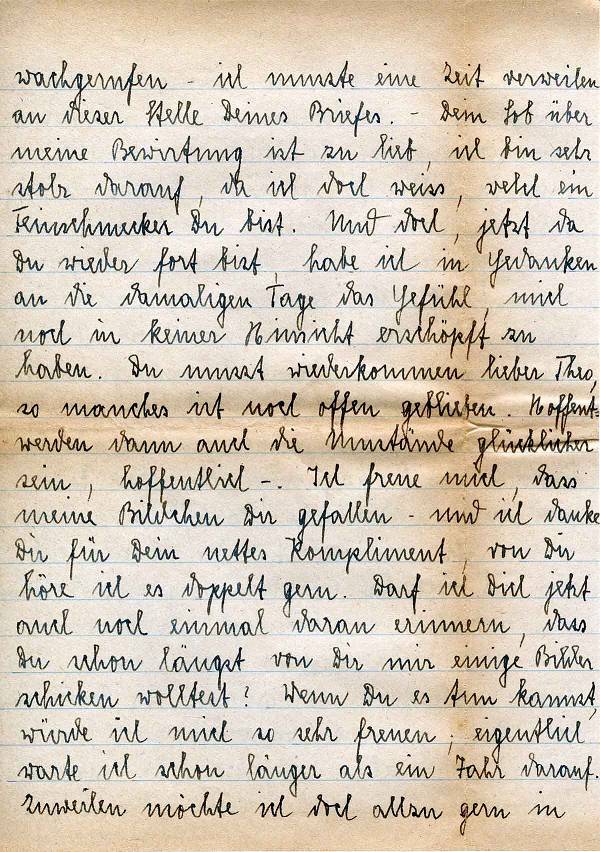 wachgerufen - ich musste eine Zeit verweilen
an dieser Stelle Deines Briefes. - Dein Lob über
meine Bewirtung ist zu lieb, ich bin sehr
stolz darauf, da ich doch weiss, welch ein
Feinschmecker Du bist. Und doch, jetzt da
Du wieder fort bist, habe ich in Gedanken
an die damaligen Tage das Gefühl, mich
noch in keiner Hinsicht erschöpft zu
haben. Du musst wiederkommen lieber Theo,
so manches ist noch offen geblieben. Hoffent=
werden dann auch die Umstände glücklicher
sein, hoffentlich -. Ich freue mich, dass
meine Bildchen Dir gefallen - und ich danke
Dir für Dein nettes Kompliment, von Du
höre ich es doppelt gern. Darf ich Dich jetzt
auch noch einmal daran erinnern, dass
Du schon längst von Dir mir einige Bilder
schicken wolltest? Wenn Du es tun kannst,
würde ich mich so sehr freuen; eigentlich
warte ich schon länger als ein Jahr darauf.
Zuweilen möchte ich doch allzu gern in